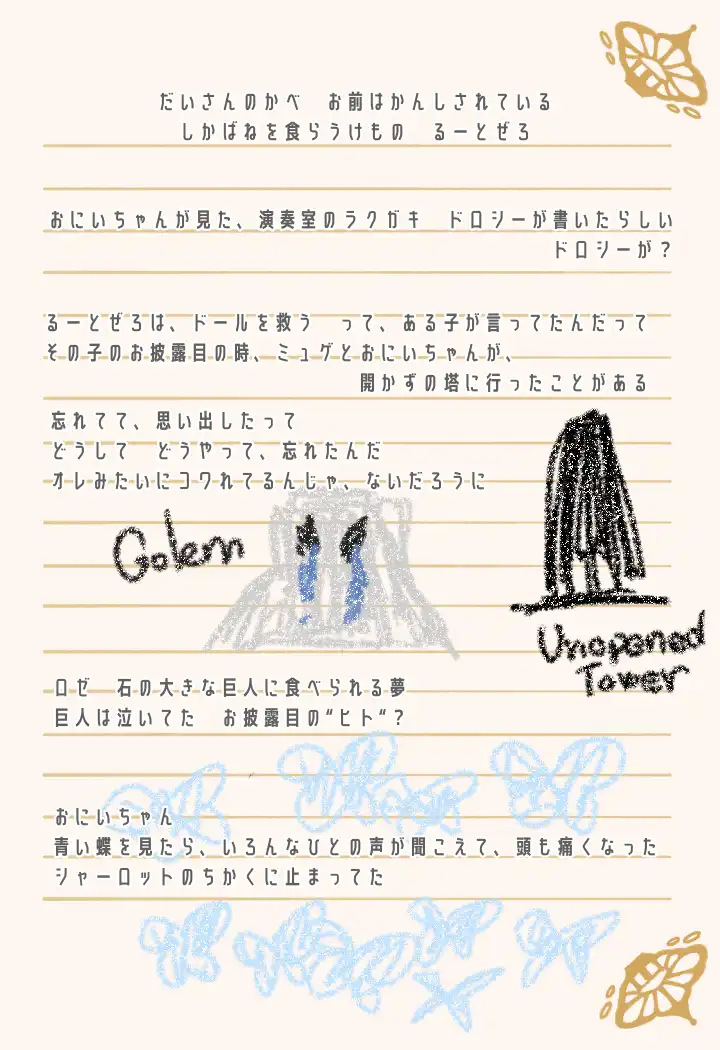 だいさんのかべ　お前はかんしされている
しかばねを食らうけもの　るーとぜろ
おにいちゃんが見た、演奏室のラクガキ　ドロシーが書いたらしい
ドロシーが？
るーとぜろは、ドールを救う　って、ある子が言ってたんだって
その子のお披露目の時、ミュゲとおにいちゃんが、
開かずの塔に行ったことがある
忘れてて、思い出したって
どうして　どうやって、忘れたんだ
オレみたいにコワれてるんじゃ、ないだろうに
Golem
Unopened
Tower
ロゼ　石の大きな巨人に食べられる夢
巨人は泣いてた　お披露目の“ヒト“？
おにいちゃん
青い蝶を見たら、いろんなひとの声が聞こえて、頭も痛くなった
シャーロットのちかくに止まってた